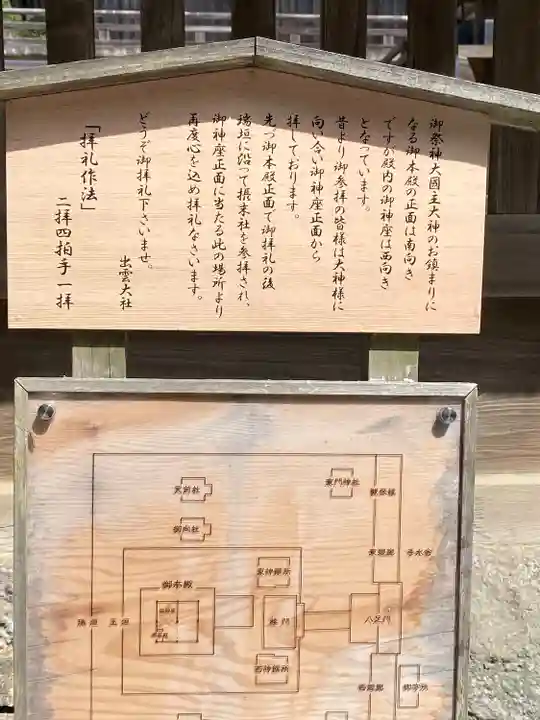 御祭神大國主大神のお鎮まりに
なる御本殿の正面は南向き
ですが殿内の御神座は西向き
となっています。
昔より御参拝の皆様は大神様に
向い合い御神座正面から
拝しております。
先づ御本殿正面で御拝礼の後
瑞垣に沿って摂末社を参拝され、
御神座正面に当たる此の場所より
再度心を込め拝礼なさいます。
どうぞ御拝礼下さいませ。
出雲大社
「拝礼作法」
二拝四拍手一拝
天前社
東門神社
観祭楼
御向社
東廻廊
手水舎
東神饌所
御本殿
瑞垣
玉垣
楼門
八足門
西神饌所
西廻廊
御守所